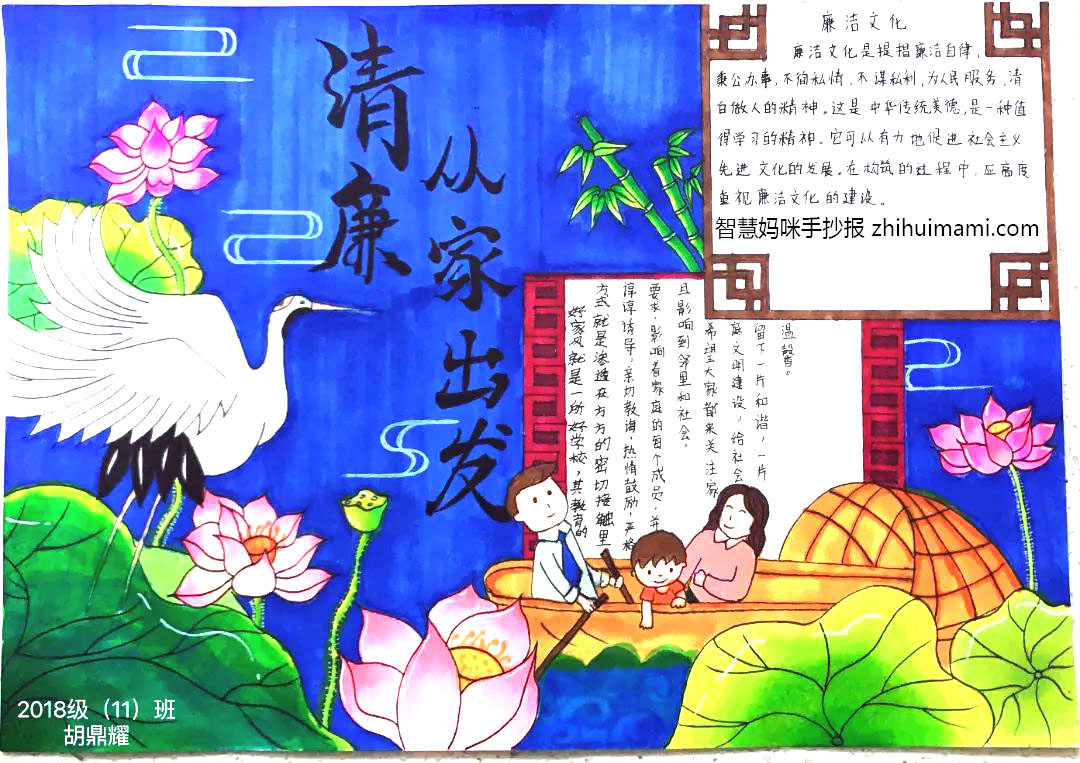 清廉
从家出发
廉洁文化
廉洁文化是提措廉洁自律，
秉公办事，不徇私情，不谋私利，为人民服务，清
白做人的精神。这是中华传统美德，是一种值
得学习的精神。它可以有力地促进社会主义
先进文化的发展。在构筑的过程中，应高度
重视廉洁文化的建设。
智慧妈咪手抄报 zhihuimami.com
好家风就是一所好学校，其教育的
方式就是渗透在方方的密切接触里
谆谆诱导。亲切教诲，热情鼓励，严格
要求，影响着家庭的每个成员，并
且影响到邻里和社会。
希望大家都来关注家
庭文明建设，给社会
留下一片和谐，一片
温馨。
2018级（11）班
胡鼎耀